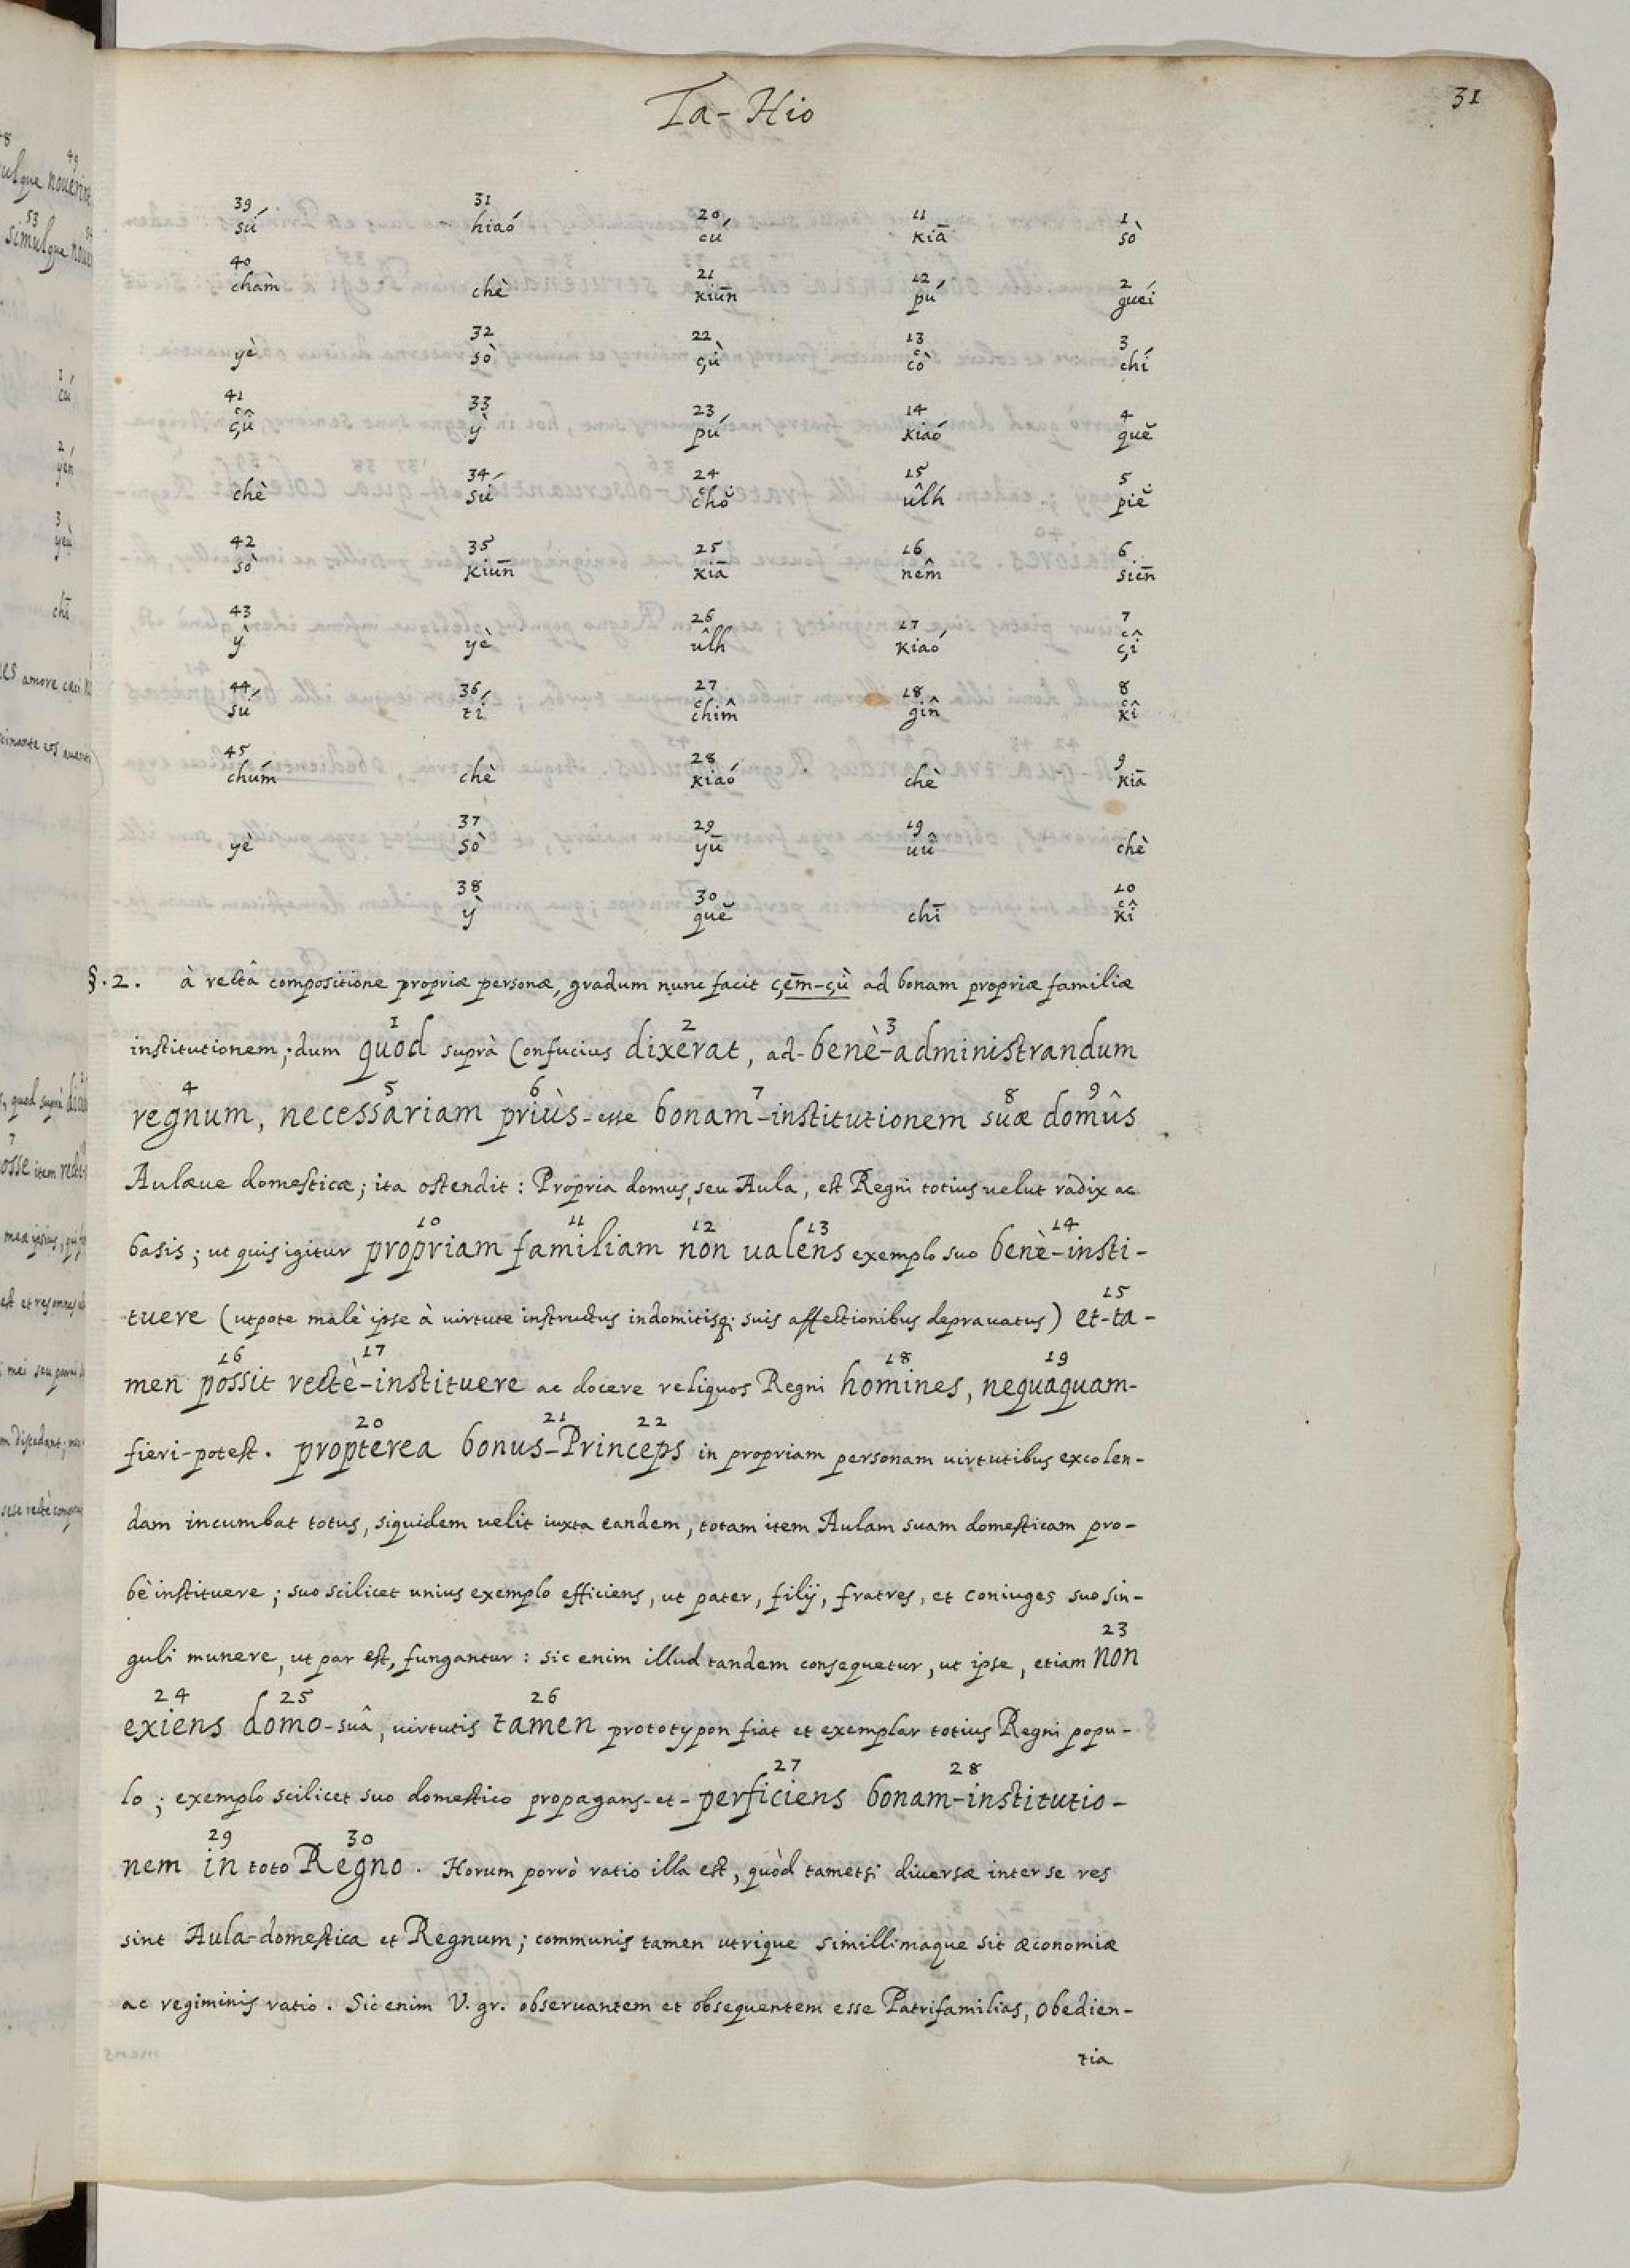 Ta-Hio
31
1 sò 2 guéi 3 chí 4 quĕ 5 piĕ 6 siēn 7 çʿî 8 kʿî 9 kiā chè 10 kʿî
11 kiā 12 pú 13 cʿò 14 kiaó 15 ûlh 16 nêm 17 kiaó 18 gîn chè 19 uû chī
20 cú 21 kiūn 22 çù 23 pú 24 chʿŏ 25 kiā 26 ûlh 27 chʿîm 28 kiaó 29 yū 30 quĕ
31 hiaó chè 32 sò 33 ỳ 34 sú 35 kiūn yè 36 tí chè 37 sò 38 ỳ
39 sú 40 chàm yè 41 çʿû chè 42 sò 43 ỳ 44 sú 45 chúm yè
§.2. à rectâ compositione propriæ personæ, gradum nunc facit çēm-çù ad bonam propriæ familiæ
1 2 3
institutionem; dum quod suprà Confucius dixerat, ad-benè-administrandum
4 5 6 7 8 9
regnum, necessariam priùs-esse bonam-institutionem suæ domûs
Aulæue domesticæ; ita ostendit: Propria domus, seu Aula, est Regni totius uelut radix ac
10 11 12 13 14
basis; ut quis igitur propriam familiam non ualens exemplo suo benè-insti-
15
tuere (utpote malè ipse à uirtute instructus indomitisq; suis affectionibus deprauatus) et-ta-
16 17 18 19
men possit rectè-instituere ac docere reliquos Regni homines, nequaquam-
20 21 22
fieri-potest. propterea bonus-Princeps in propriam personam uirtutibus excolen-
dam incumbat totus, siquidem uelit iuxta eandem, totam item Aulam suam domesticam pro-
bè instituere; suo scilicet unius exemplo efficiens, ut pater, filij, fratres, et coniuges suo sin-
23
guli munere, ut par est, fungantur: sic enim illud tandem consequetur, ut ipse, etiam non
24 25 26
exiens domo-suâ, uirtutis tamen prototypon fiat et exemplar totius Regni popu-
27 28
lo; exemplo scilicet suo domestico propagans-et-perficiens bonam-institutio-
29 30
nem in toto Regno. Horum porrò ratio illa est, quòd tametsi diuersæ inter se res
sint Aula-domestica et Regnum; communis tamen utrique simillimaque sit œconomiæ
ac regiminis ratio. Sic enim V. gr. obseruantem et obsequentem esse Patrifamilias, obedien-
tia